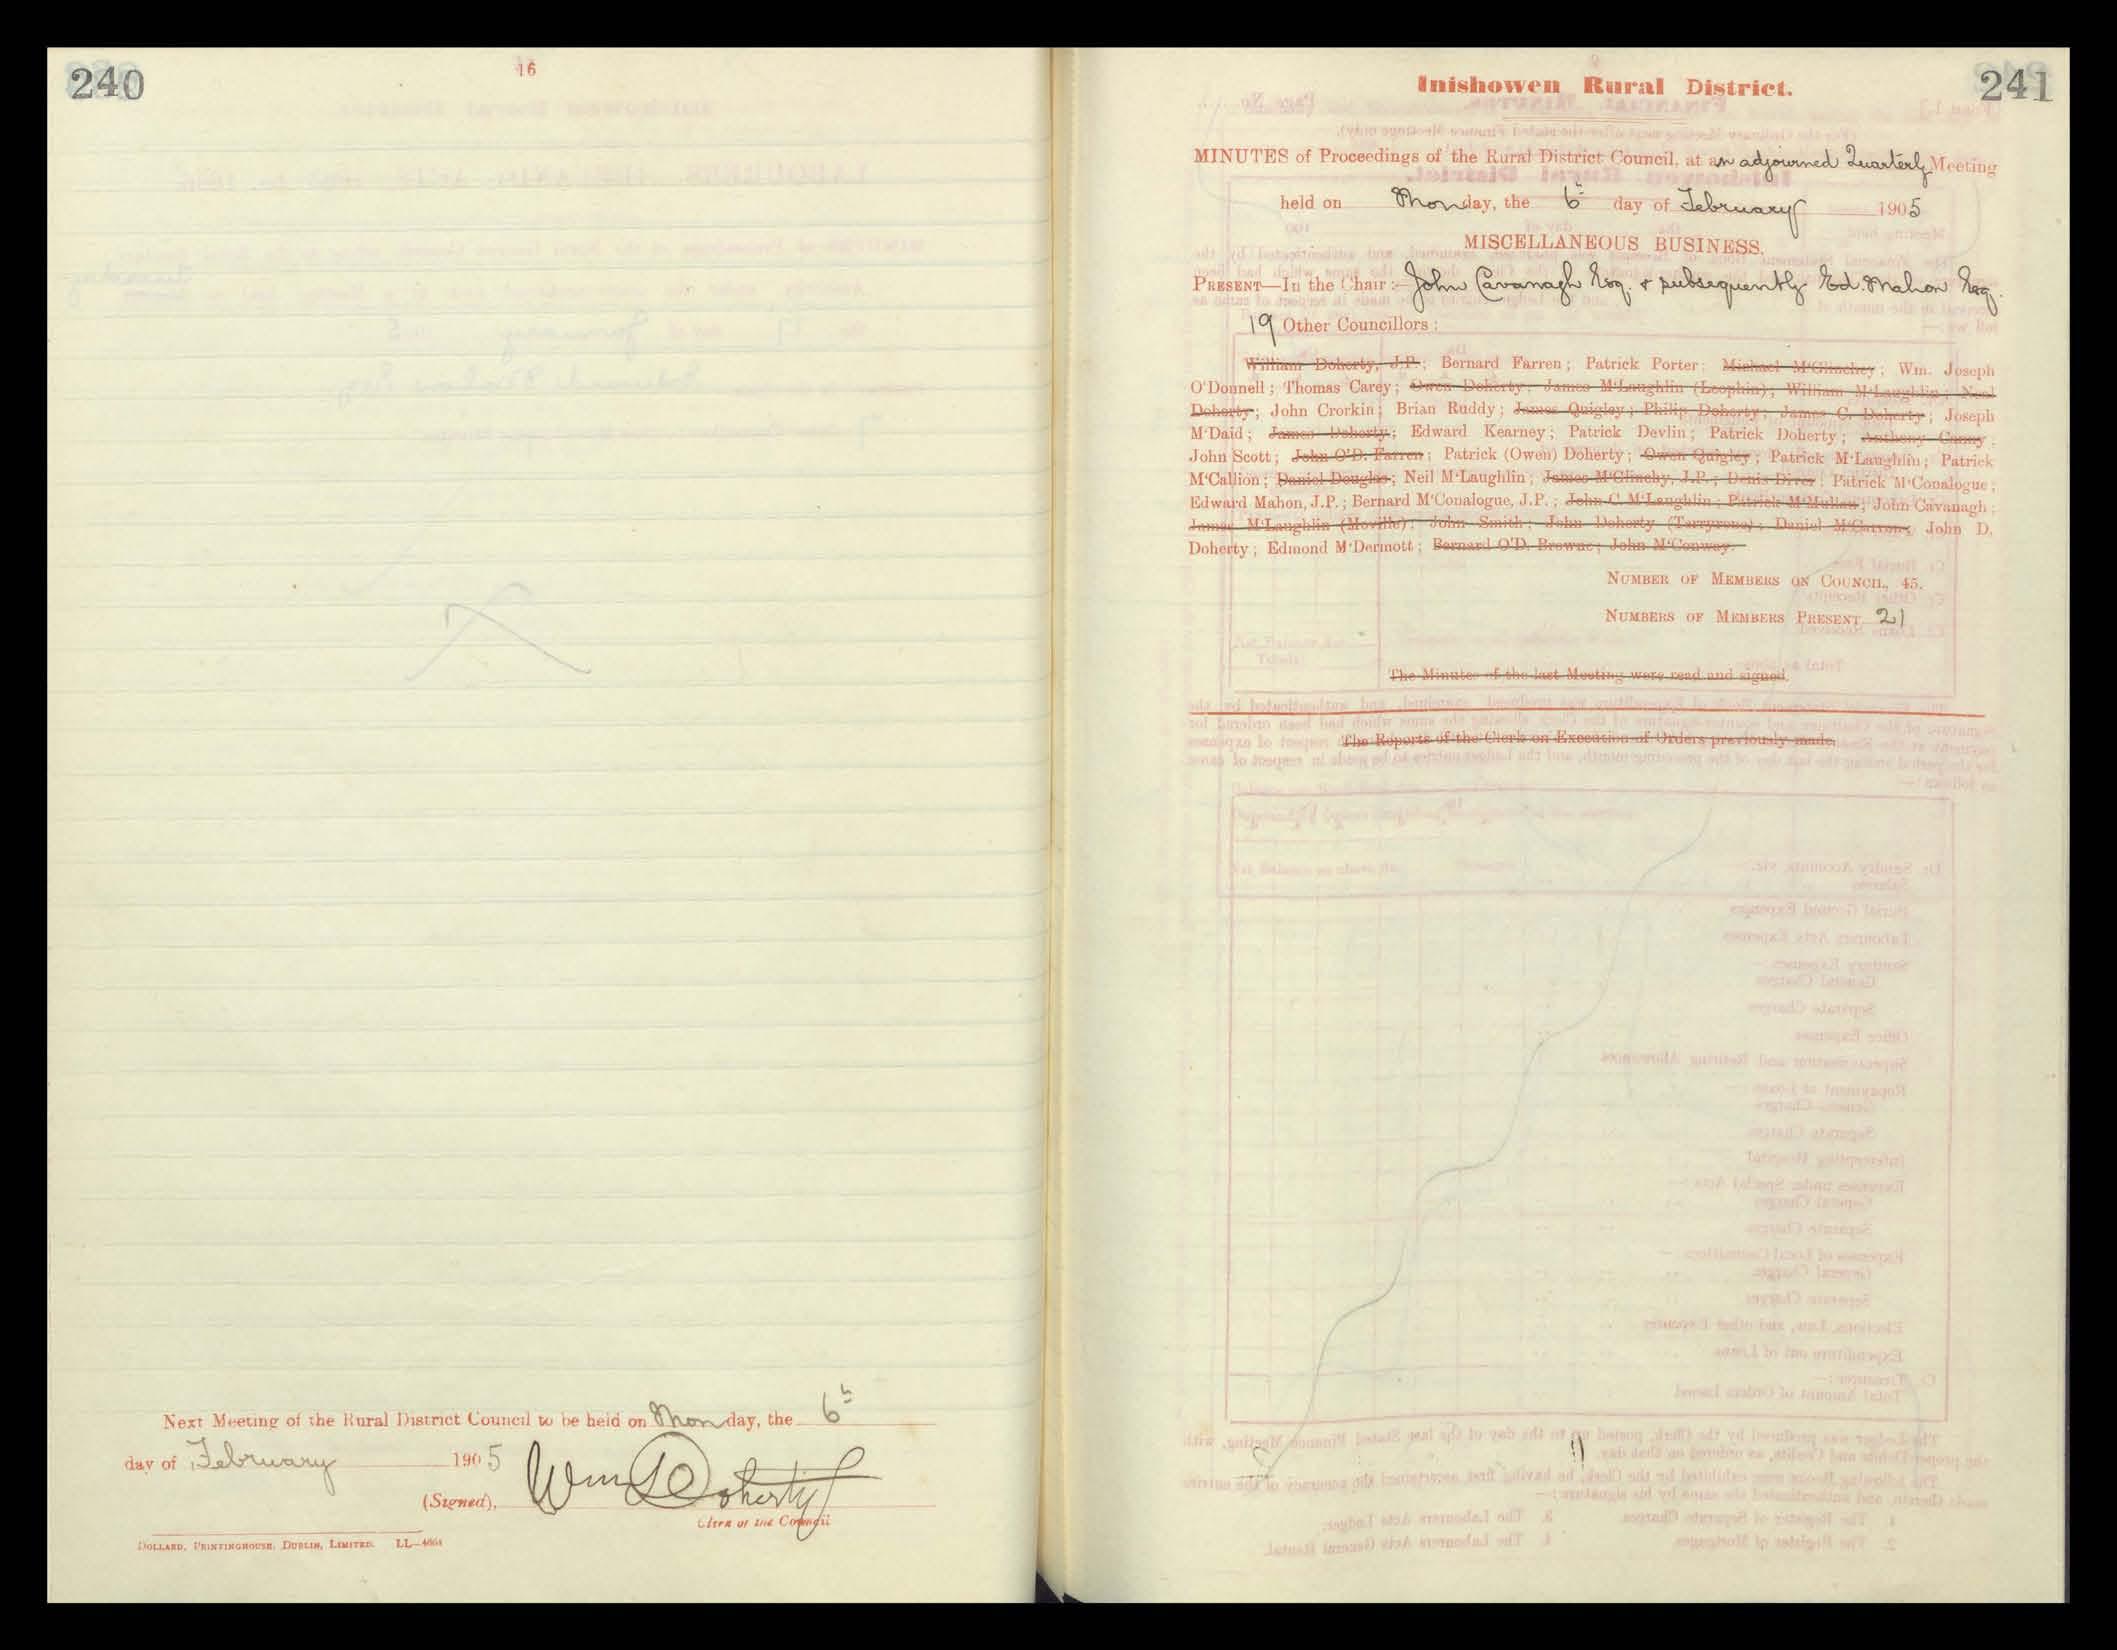 240
16
Next Meeting of the Rural District Council to be held on Monday, the 6th
day of February 1905
(Signed), Wm Doherty
Clerk of the Council
DOLLARD, PRINTINGHOUSE, DUBLIN, LIMITED.
241
Inishowen Rural District.
MINUTES of Proceedings of the Rural District Council, at an adjourned Quarterly Meeting
held on Monday, the 6th day of February 1905
MISCELLANEOUS BUSINESS.
PRESENT—In the Chair :— John Cavanagh Esq. & subsequently Ed. Mahon Esq.
19 Other Councillors :
William Doherty, J.P.; Bernard Farren; Patrick Porter; Michael M'Glinchey; Wm. Joseph
O'Donnell; Thomas Carey; Owen Doherty; James M'Laughlin (Leophin); William M'Laughlin; Neal
Doherty; John Crorkin; Brian Ruddy; James Quigley; Philip Doherty; James C. Doherty; Joseph
M'Daid; James Doherty; Edward Kearney; Patrick Devlin; Patrick Doherty; Anthony Canny;
John Scott; John O'D. Farren; Patrick (Owen) Doherty; Owen Quigley; Patrick M'Laughlin; Patrick
M'Callion; Daniel Douglas; Neil M'Laughlin; James M'Glinchy, J.P.; Denis Diver; Patrick M'Conalogue;
Edward Mahon, J.P.; Bernard M'Conalogue, J.P.; John C. M'Laughlin; Patrick M'Mullan; John Cavanagh;
James M'Laughlin (Moville); John Smith; John Doherty (Tarryrone); Daniel M'Carron; John D.
Doherty; Edmond M'Dermott; Bernard O'D. Browne; John M'Conway.
NUMBER OF MEMBERS ON COUNCIL, 45.
NUMBERS OF MEMBERS PRESENT 21
The Minutes of the last Meeting were read and signed.
The Reports of the Clerk on Execution of Orders previously made.